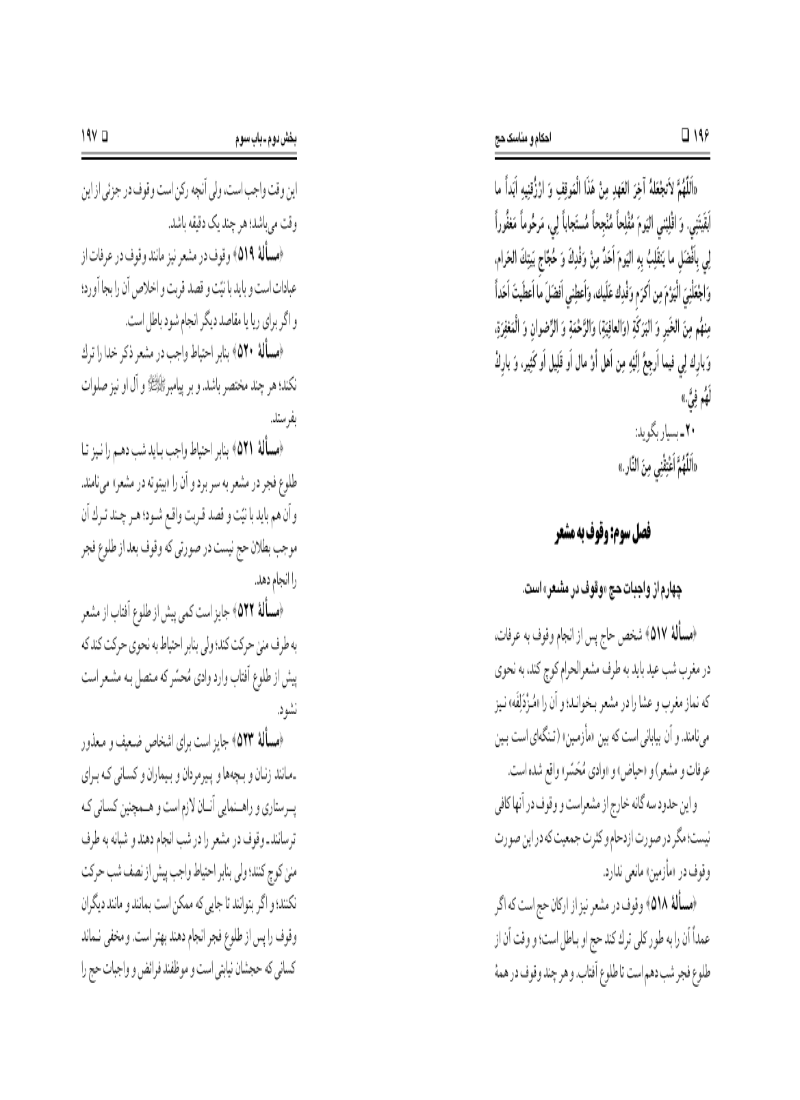 ۱۹۶ □ احکام و مناسک حج
«اَللّهُمَّ لاتَجْعَلهُ آخِرَ العَهدِ مِنْ هَذَا الْمَوقِفِ وَ ارْزُقنِیهِ أَبَداً ما
أَبقَیتَنِی. وَ اقلِبْنِی الیَومَ مُفْلِحاً مُنْجِحاً مُستَجاباً لِی، مَرحُوماً مَغفُوراً
لِی بِأَفْضَلِ ما یَنقَلِبُ بِهِ الیَومَ أَحَدٌ مِنْ وَفْدِكَ وَ حُجّاجِ بَیتِكَ الحَرامِ،
وَاجْعَلْنِیَ الْیَوْمَ مِن أَکرَمِ وَفْدِكَ عَلَیك، وَأَعطِنِی أَفضَلَ ما أَعطَیتَ أَحَداً
مِنهُم مِنَ الخَیرِ وَ البَرَکَةِ (وَالعافِیَةِ) وَالرَّحْمَةِ وَ الرِّضوانِ وَ الْمَغفِرَةِ،
وَ بارِك لِی فیما أَرجِعُ إِلَیْهِ مِن أَهلٍ أَوْ مالٍ أَو قَلِیلٍ أَو کَثِیرٍ، وَ بارِكْ
لَهُم فِیَّ.»
۲۰ ـ بسیار بگوید:
«اَللّهُمَّ أَعْتِقْنِی مِنَ النَّار.»
فصل سوم: وقوف به مشعر
چهارم از واجبات حج «وقوف در مشعر» است.
﴿مسألهٔ ۵۱۷﴾ شخص حاج پس از انجام وقوف به عرفات،
در مغرب شب عید باید به طرف مشعرالحرام کوچ کند، به نحوی
که نماز مغرب و عشا را در مشعر بخواند؛ و آن را «مُزْدَلِفَه» نیز
می‌نامند. و آن بیابانی است که بین «مأزمین» (تنگه‌ای است بین
عرفات و مشعر) و «حیاض» و «وادی مُحَسِّر» واقع شده است.
و این حدود سه گانه خارج از مشعراست و وقوف در آنها کافی
نیست؛ مگر در صورت ازدحام و کثرت جمعیت که در این صورت
وقوف در «مأزمین» مانعی ندارد.
﴿مسألهٔ ۵۱۸﴾ وقوف در مشعر نیز از ارکان حج است که اگر
عمداً آن را به طور کلی ترك کند حج او باطل است؛ و وقت آن از
طلوع فجر شب دهم است تا طلوع آفتاب. و هر چند وقوف در همهٔ
بخش دوم ـ باب سوم □ ۱۹۷
این وقت واجب است، ولی آنچه رکن است وقوف در جزئی از این
وقت می‌باشد؛ هر چند یک دقیقه باشد.
﴿مسألهٔ ۵۱۹﴾ وقوف در مشعر نیز مانند وقوف در عرفات از
عبادات است و باید با نیّت و قصد قربت و اخلاص آن را بجا آورد؛
و اگر برای ریا یا مقاصد دیگر انجام شود باطل است.
﴿مسألهٔ ۵۲۰﴾ بنابر احتیاط واجب در مشعر ذکر خدا را ترك
نکند؛ هر چند مختصر باشد. و بر پیامبرﷺ و آل او نیز صلوات
بفرستد.
﴿مسألهٔ ۵۲۱﴾ بنابر احتیاط واجب باید شب دهم را نیز تا
طلوع فجر در مشعر به سر برد و آن را «بیتوته در مشعر» می‌نامند.
و آن هم باید با نیّت و قصد قربت واقع شود؛ هر چند ترك آن
موجب بطلان حج نیست در صورتی که وقوف بعد از طلوع فجر
را انجام دهد.
﴿مسألهٔ ۵۲۲﴾ جایز است کمی پیش از طلوع آفتاب از مشعر
به طرف منیٰ حرکت کند؛ ولی بنابر احتیاط به نحوی حرکت کند که
پیش از طلوع آفتاب وارد وادی مُحسِّر که متصل به مشعر است
نشود.
﴿مسألهٔ ۵۲۳﴾ جایز است برای اشخاص ضعیف و معذور
ـ مانند زنان و بچه‌ها و پیرمردان و بیماران و کسانی که برای
پرستاری و راهنمایی آنان لازم است و همچنین کسانی که
ترسانند ـ وقوف در مشعر را در شب انجام دهند و شبانه به طرف
منیٰ کوچ کنند؛ ولی بنابر احتیاط واجب پیش از نصف شب حرکت
نکنند؛ و اگر بتوانند تا جایی که ممکن است بمانند و مانند دیگران
وقوف را پس از طلوع فجر انجام دهند بهتر است. و مخفی نماند
کسانی که حجشان نیابتی است و موظفند فرائض و واجبات حج را